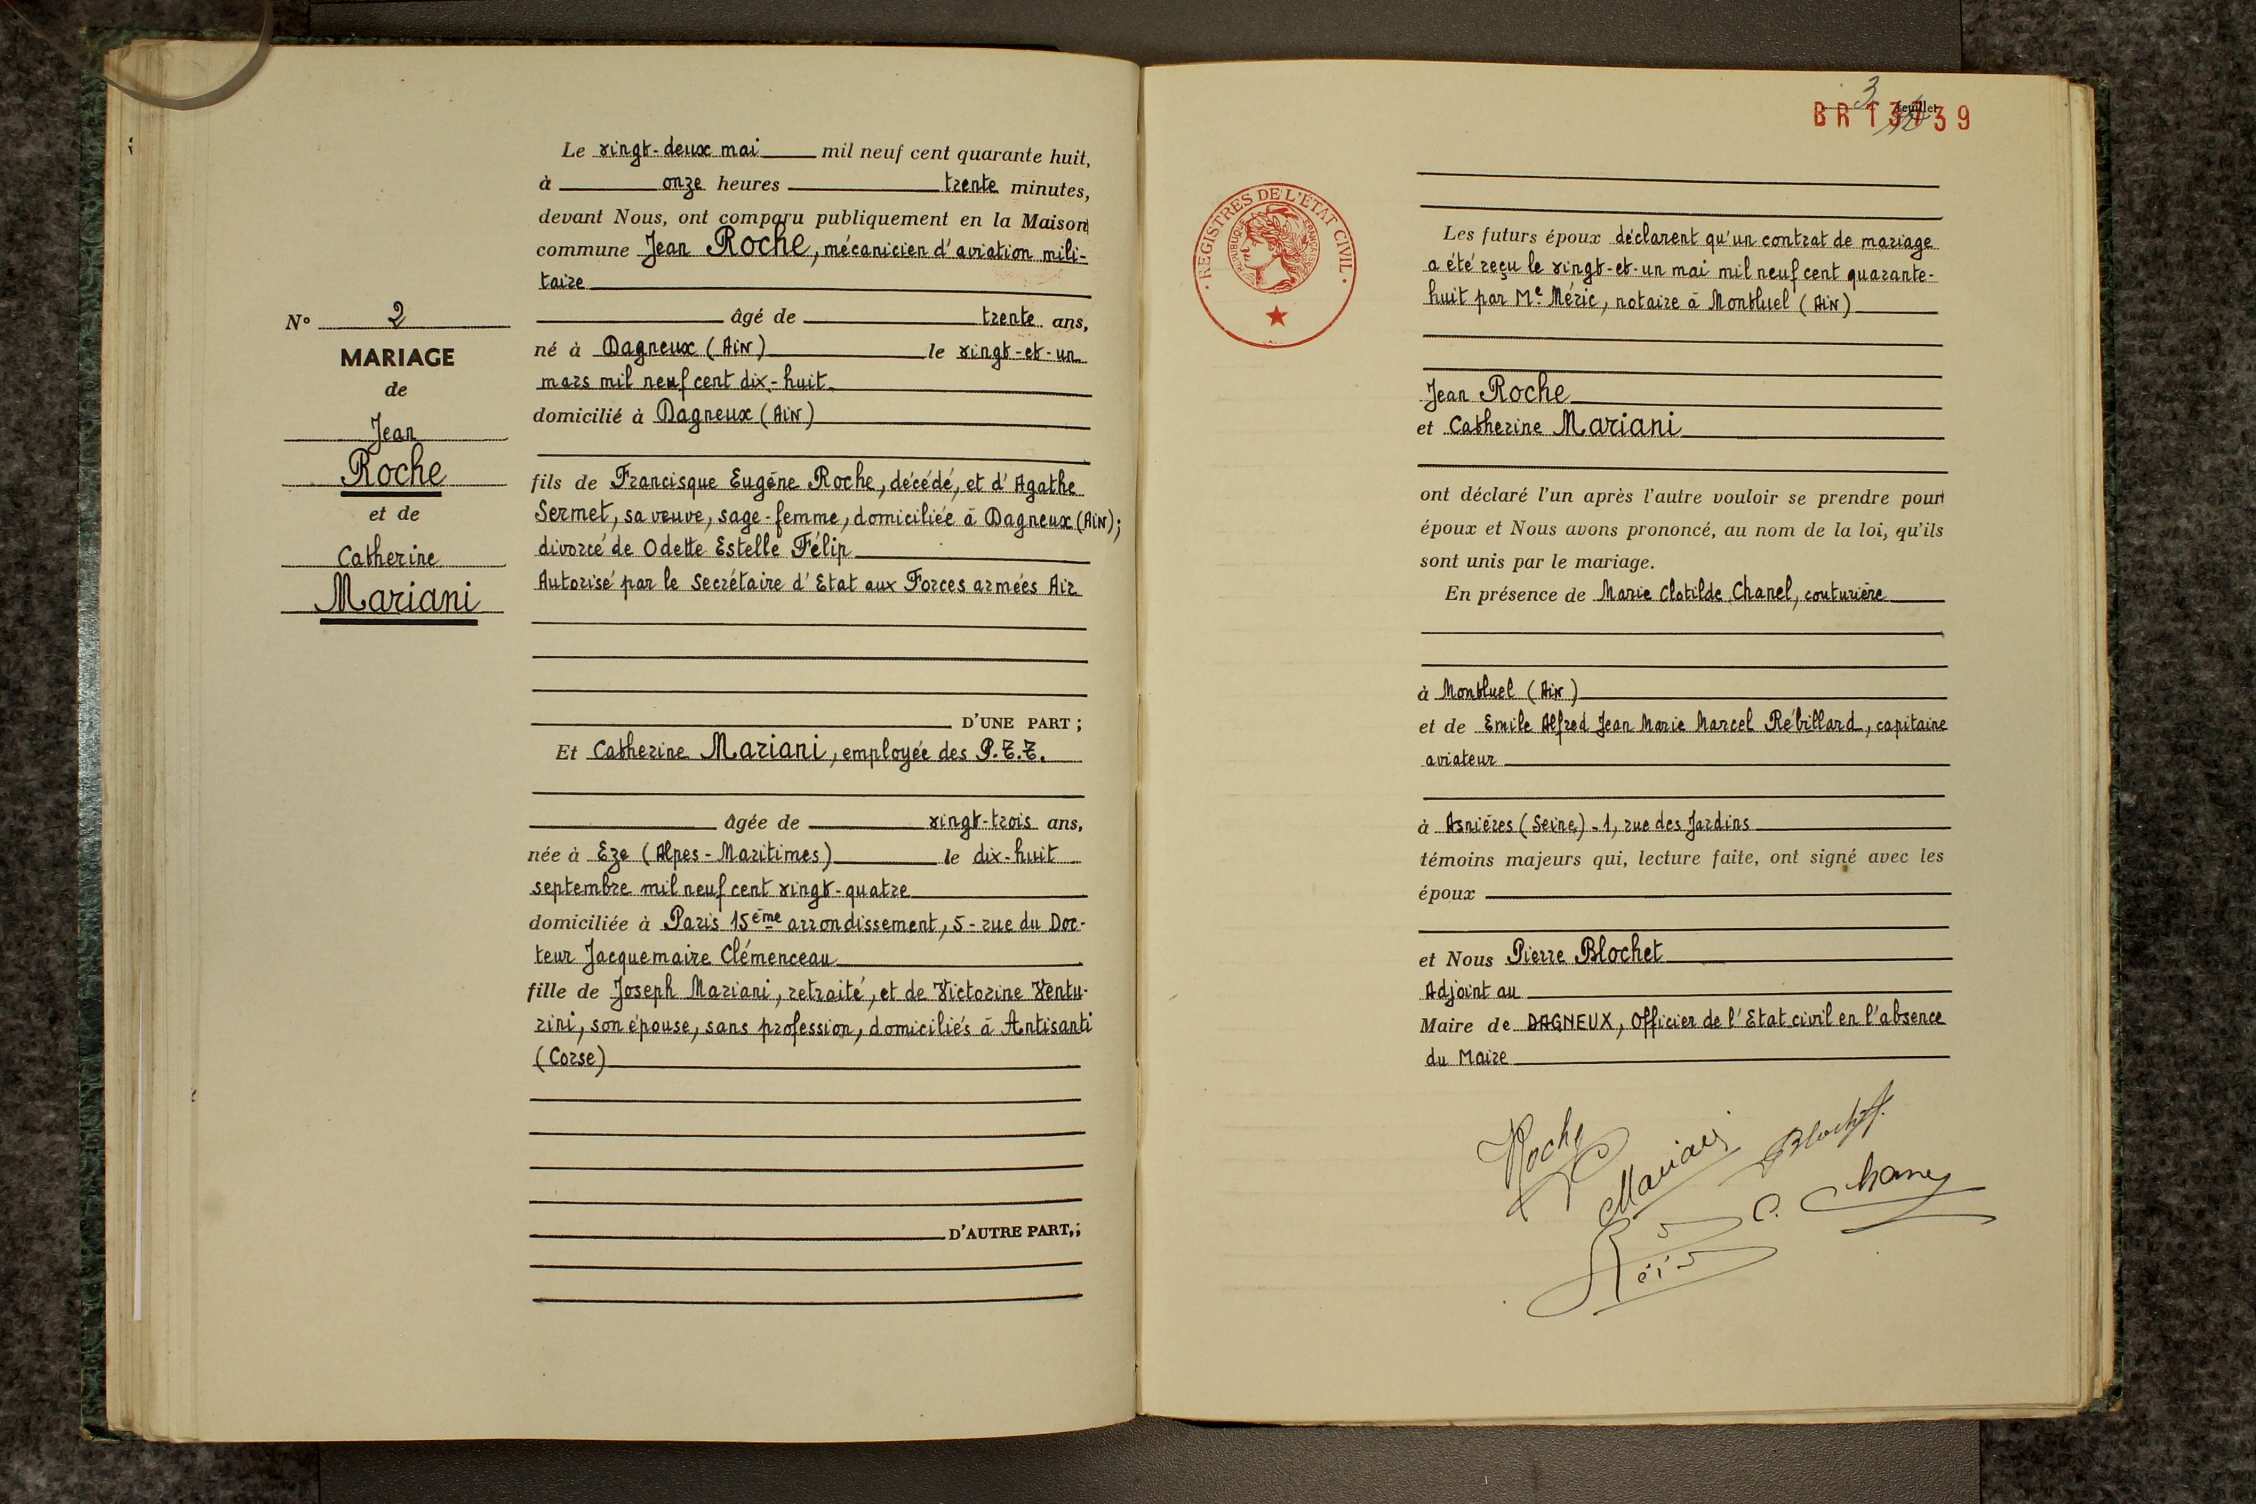 Le vingt-deux mai mil neuf cent quarante huit,
à onze heures trente minutes,
devant Nous, ont comparu publiquement en la Maison
commune Jean Roche, mécanicien d'aviation mili-
taire
âgé de trente ans,
né à Dagneux (Ain) le vingt-et-un
mars mil neuf cent dix-huit
domicilié à Dagneux (Ain)
fils de Francisque Eugène Roche, décédé, et d'Agathe
Sermet, sa veuve, sage-femme, domiciliée à Dagneux (Ain);
divorcé de Odette Estelle Félip
Autorisé par le Secrétaire d'Etat aux Forces armées Air
D'UNE PART ;
Et Catherine Mariani, employée des P.T.T.
âgée de vingt-trois ans,
née à Eze (Alpes-Maritimes) le dix-huit
septembre mil neuf cent vingt-quatre
domiciliée à Paris 15ème arrondissement, 5-rue du Doc-
teur Jacquemaire Clémenceau
fille de Joseph Mariani, retraité, et de Victorine Ventu-
rini, son épouse, sans profession, domiciliés à Antisanti
(Corse)
D'AUTRE PART,;
N° 2
MARIAGE
de
Jean
Roche
et de
Catherine
Mariani
3 feuillet
BR13739
REGISTRES DE L'ÉTAT CIVIL
RÉPUBLIQUE FRANÇAISE
Les futurs époux déclarent qu'un contrat de mariage
a été reçu le vingt-et-un mai mil neuf cent quarante-
huit par Me Méric, notaire à Montluel (Ain)
Jean Roche
et Catherine Mariani
ont déclaré l'un après l'autre vouloir se prendre pour
époux et Nous avons prononcé, au nom de la loi, qu'ils
sont unis par le mariage.
En présence de Marie Clotilde Chanel, couturière
à Montluel (Ain)
et de Emile Alfred Jean Marie Marcel Rébillard, capitaine
aviateur
à Asnières (Seine) - 1, rue des Jardins
témoins majeurs qui, lecture faite, ont signé avec les
époux
et Nous Pierre Blochet
Adjoint au
Maire de DAGNEUX, Officier de l'Etat civil en l'absence
du Maire
Roche
Mariani
Blochet
C. Chanel